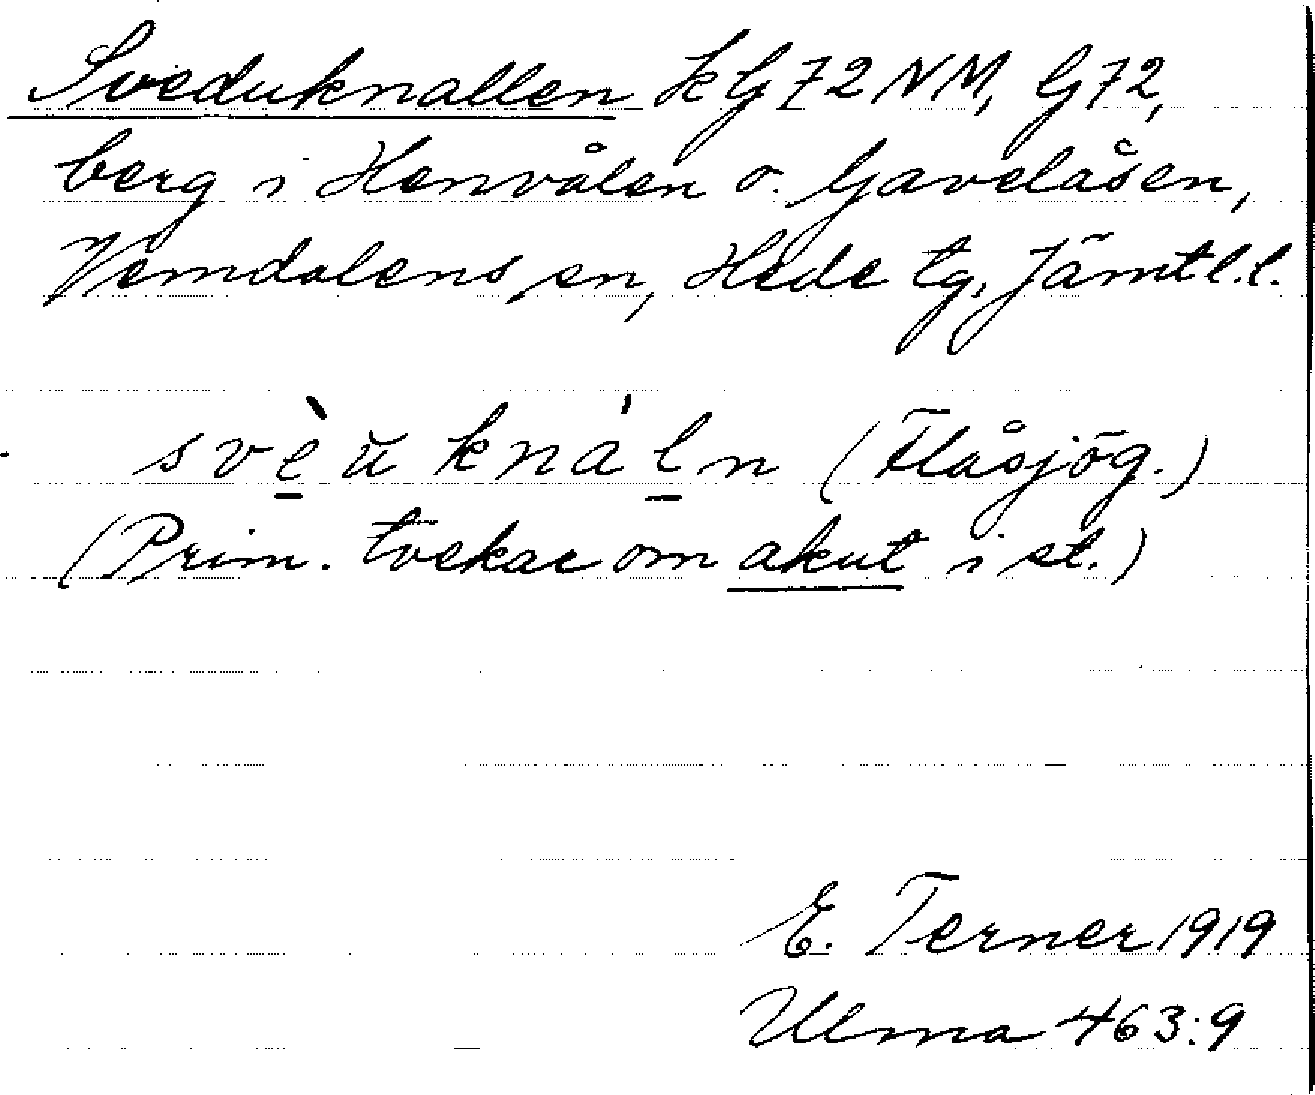 Sveduknallen kG72NM, G72,
berg i Henvålen o. Gavelåsen,
Vemdalens sn, Hede tg, Jämtl.l.
svèŭ kna'ln (Flåsjög.)
(Prim. tvekar om akut i st.)
E. Terner 1919
Ulma 463:9